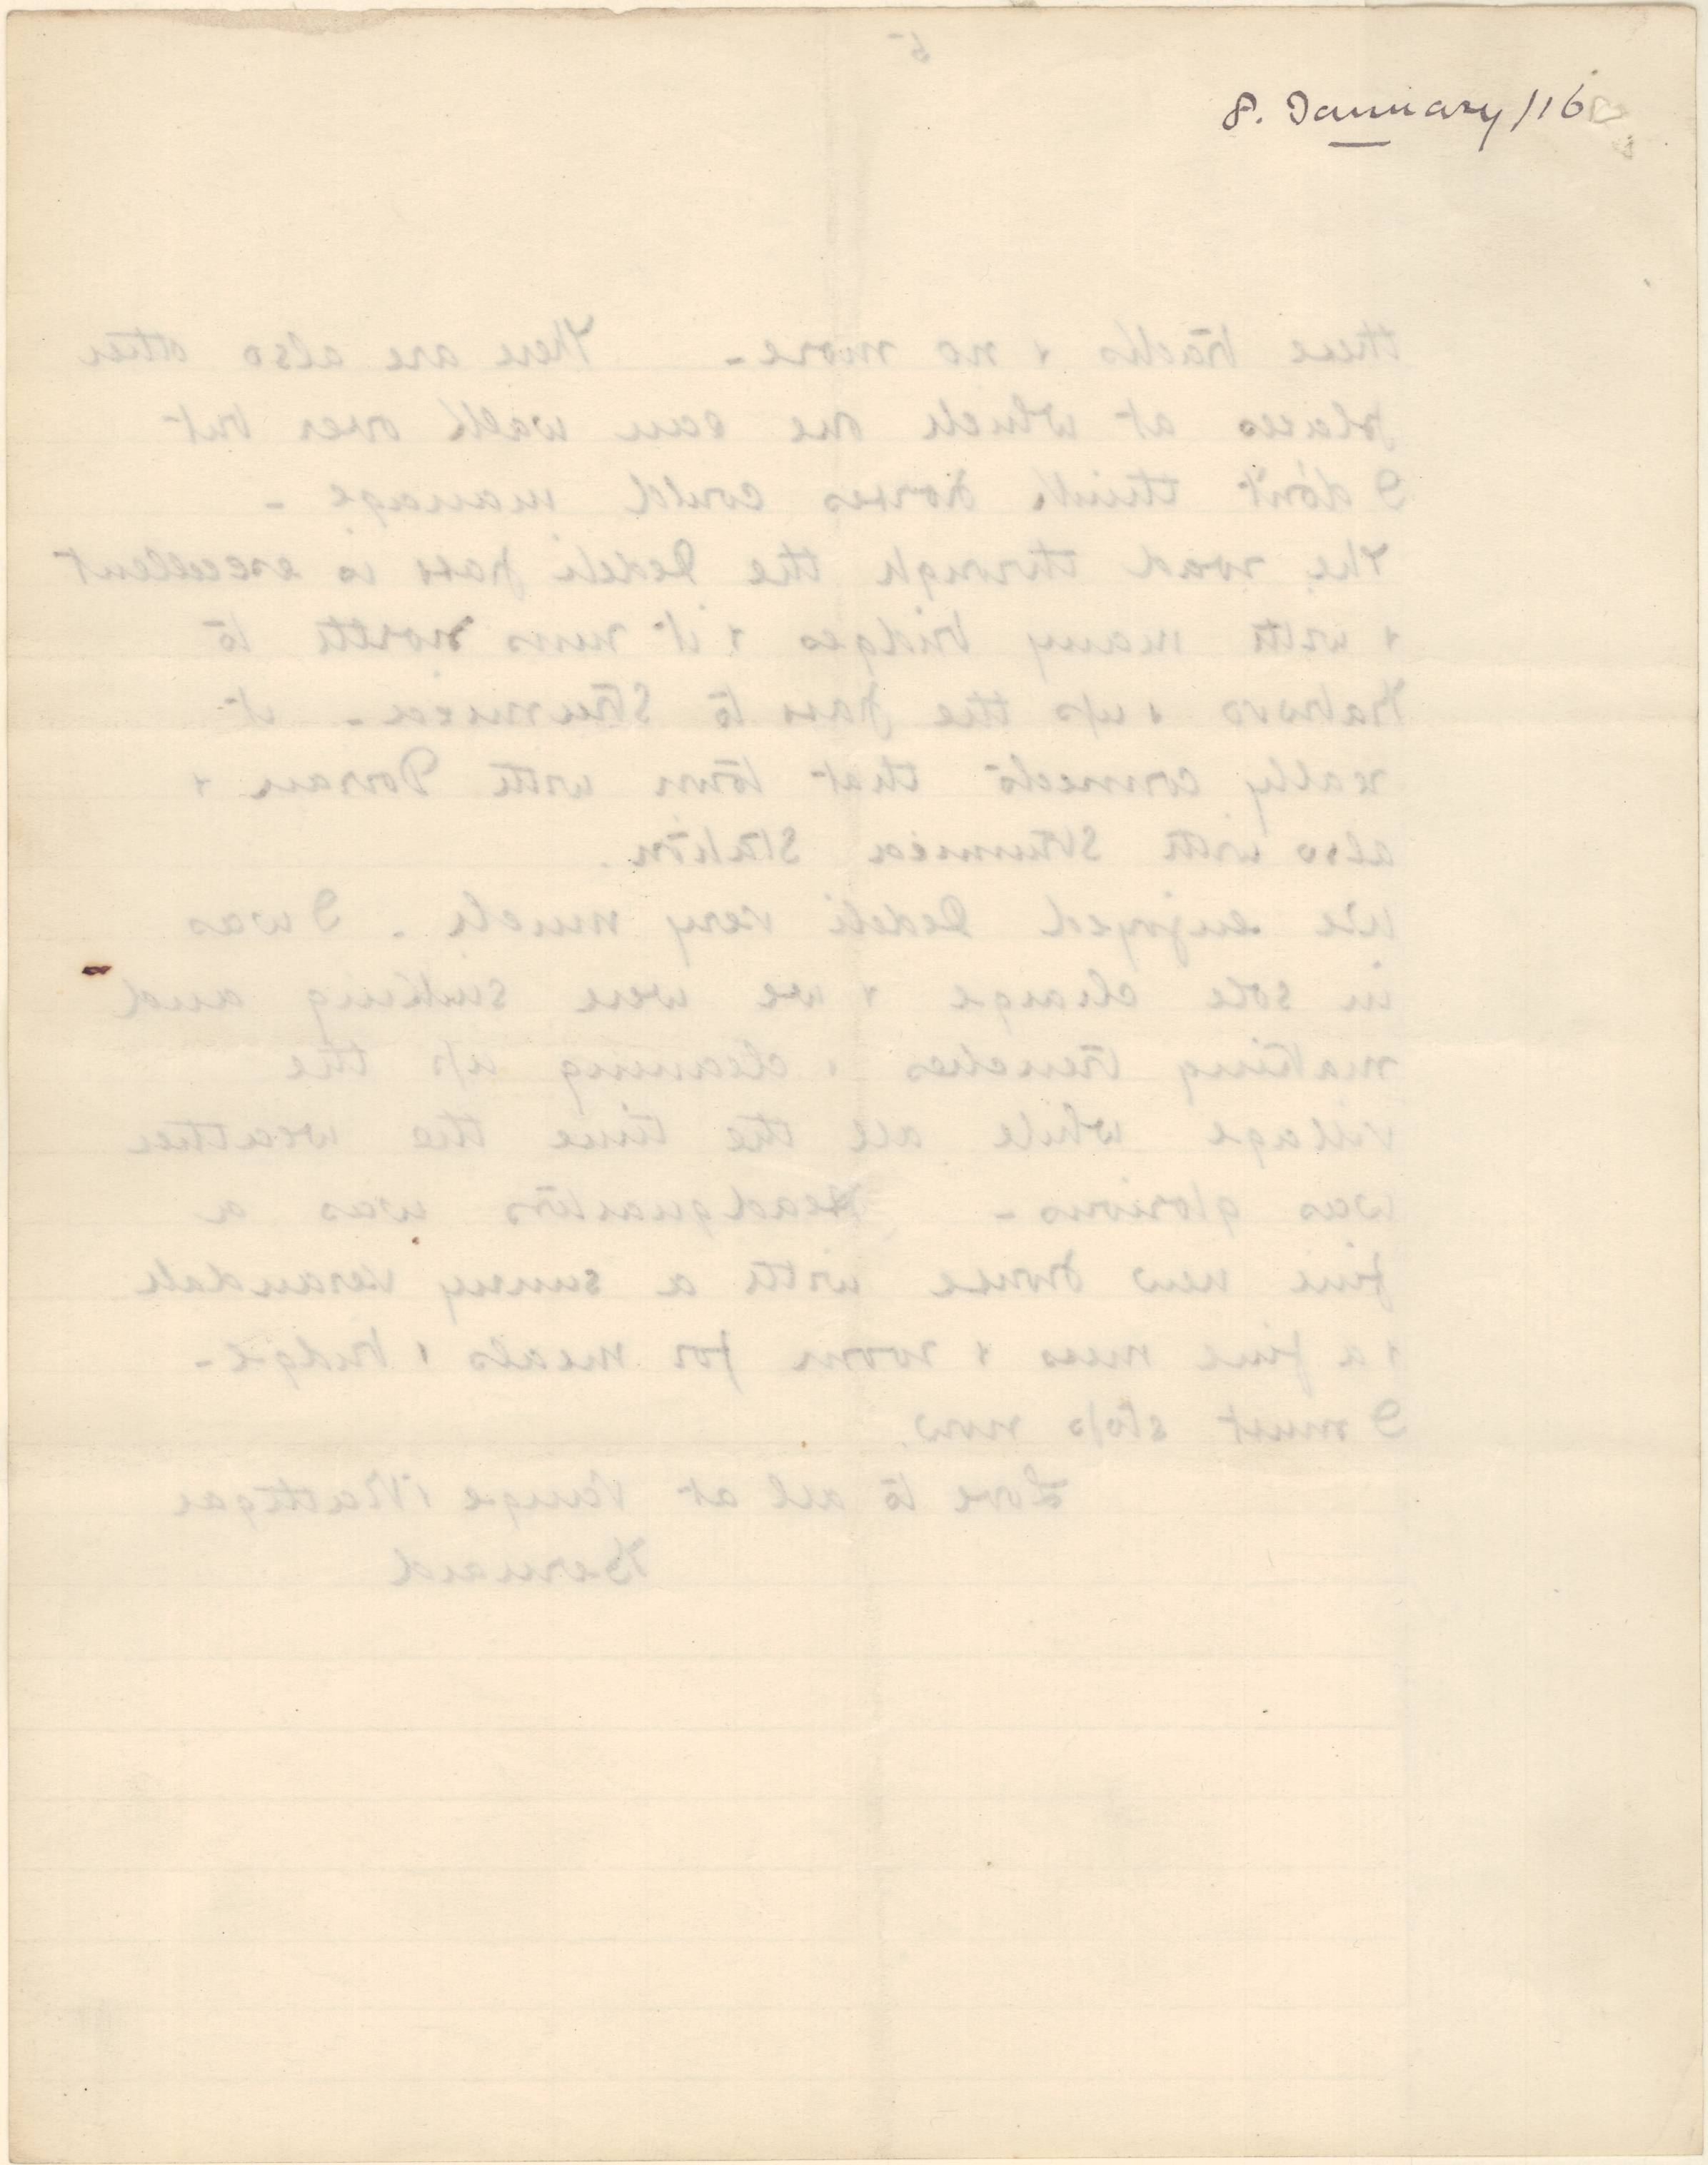 8. January /16
5
these tracks + no more - There are also other
places at which one can walk over but
I don't think horses could manage -
The road through the Dedeli pass is excellent
+ with many bridges + it runs north to
Rabrovo + up the pass to Strumica - it
really connects that town with Doiran +
also with Strumica station.
We enjoyed Dedeli very much . I was
in sole charge + we were sinking and
making trenches + cleaning up the
village while all the time the weather
was glorious - Headquarters was a
fine new house with a sunny verandah
+ a fine mess + room for meals + bridge -
I must stop now
Love to all at Vange
Bernard